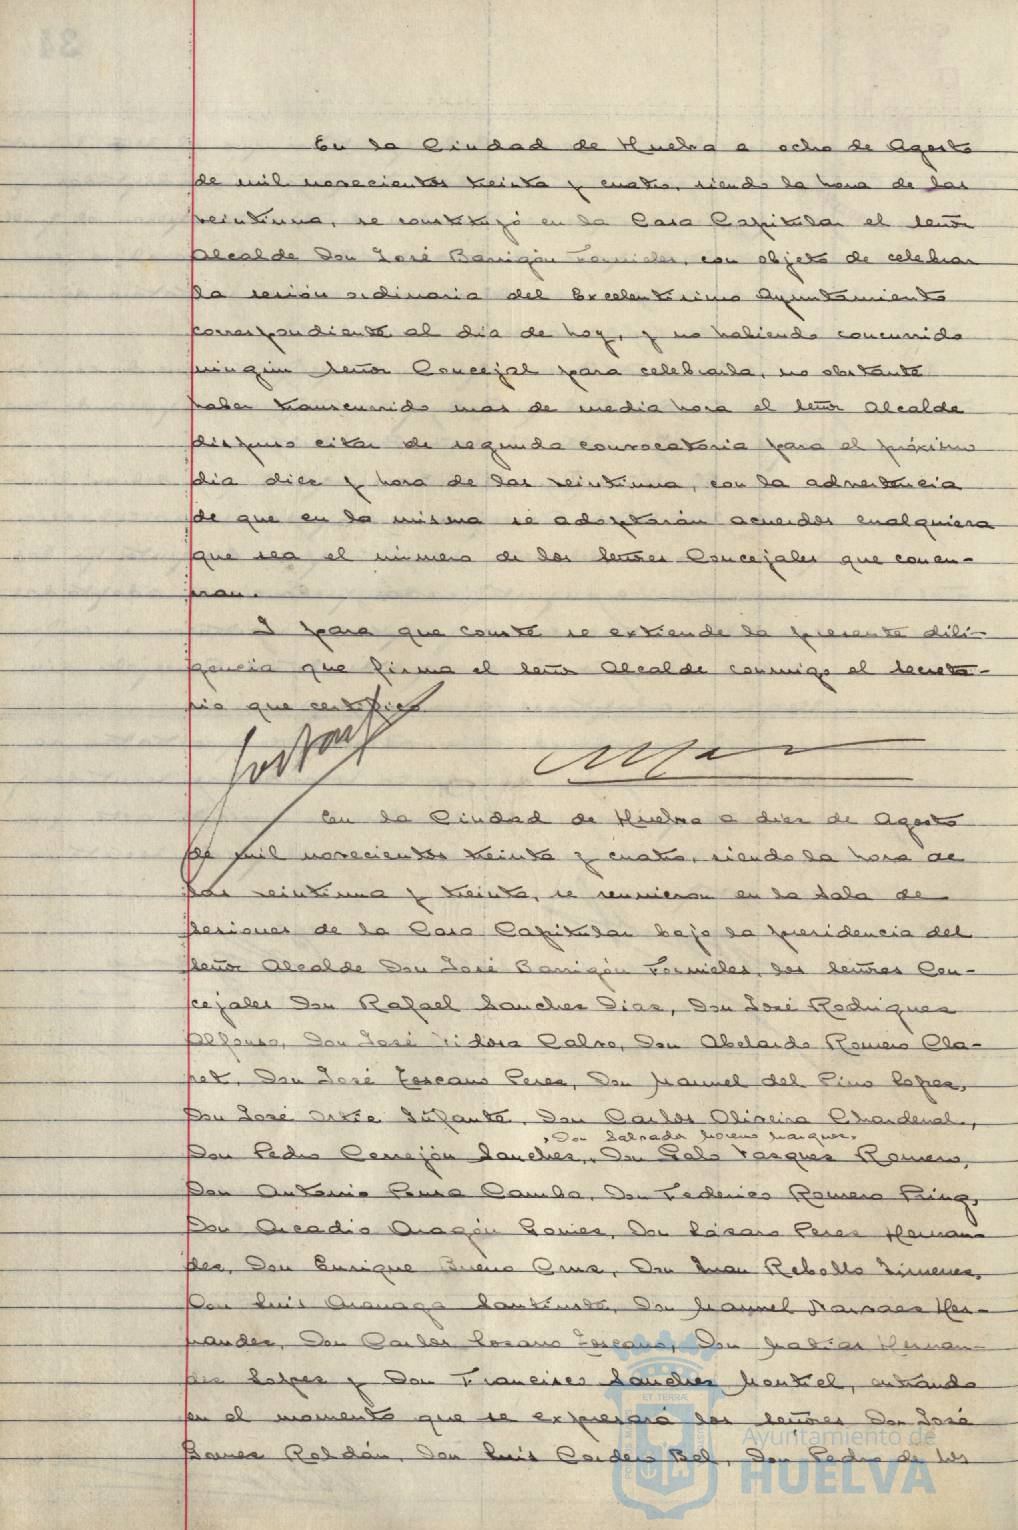 En la Ciudad de Huelva a ocho de Agosto
de mil novecientos treinta y cuatro, siendo la hora de las
veintiuna, se constituyó en la Casa Capitular el señor
Alcalde Don José Barrigón Fornieles, con objeto de celebrar
la sesión ordinaria del Excelentísimo Ayuntamiento
correspondiente al dia de hoy, y no habiendo concurrido
ningún señor Concejal para celebrarla, no obstante
haber transcurrido mas de media hora el señor Alcalde
dispuso citar de segunda convocatoria para el próximo
dia diez y hora de las veintiuna, con la advertencia
de que en la misma se adoptarán acuerdos cualquiera
que sea el número de los señores Concejales que concu-
rran.
Y para que conste se extiende la presente dili-
gencia que firma el señor Alcalde conmigo el Secreta-
rio que certifico
En la Ciudad de Huelva a diez de Agosto
de mil novecientos treinta y cuatro, siendo la hora de
las veintiuna y treinta, se reunieron en la Sala de
Sesiones de la Casa Capitular bajo la presidencia del
señor Alcalde Don José Barrigón Fornieles, los señores Con-
cejales Don Rafael Sanchez Diaz, Don José Rodriguez
Alfonso, Don José Tidora Calvo, Don Abelardo Romero Cla-
ret, Don José Toscano Perez, Don Manuel del Pino Lopez,
Don José Ortiz Infante, Don Carlos Oliveira Chardenal,
, Don Salvador Moreno Marquez,
Don Pedro Cerrejón Sanchez, Don Galo Vazquez Romero,
Don Antonio Ponce Camba, Don Federico Romero
Don Arcadio Aragón Gomez, Don Lázaro Perez Hernan-
dez, Don Enrique Bueno Cruz, Don Juan Rebollo Jimenez,
Don Luis Don Manuel Narvaez Her-
nandez, Don Carlos Lozano Toscano, Don Matias Hernan-
dez Lopez y Don Francisco Sanchez Montiel, entrando
en el momento que se expresará los señores Don José
Gomez Roldán, Don Luis Cordero Bel, Don Pedro de los
Ayuntamiento de
HUELVA